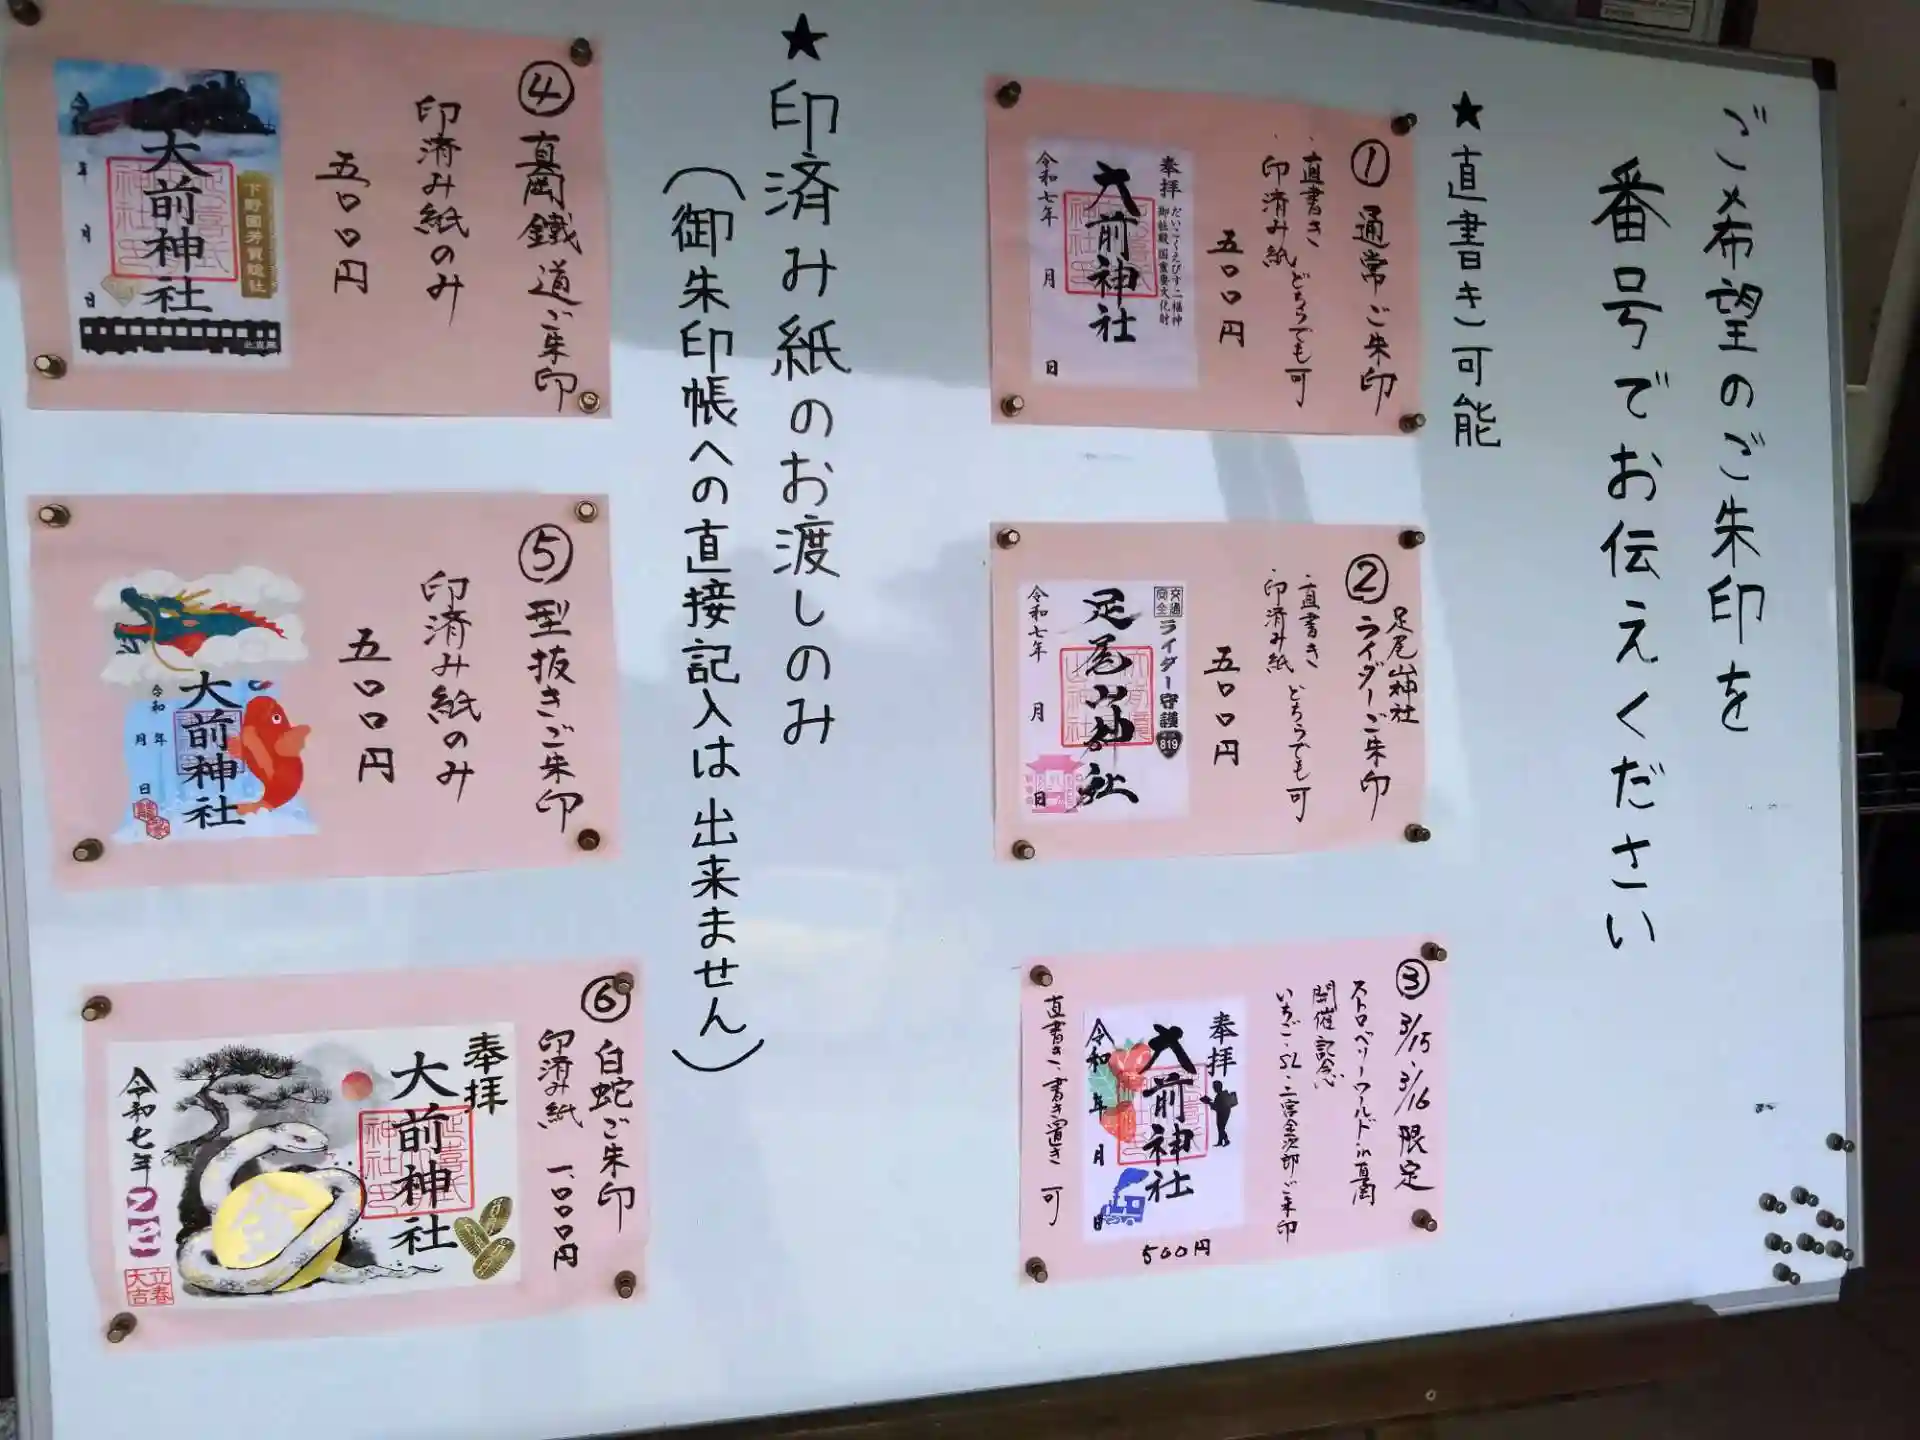 ご希望のご朱印を
番号でお伝えください
★直書き可能
①通常ご朱印
・直書き
・印済み紙 どちらでも可
五〇〇円
奉拝
だいこくえびす二福神
御社殿国重要文化財
大前神社
令和七年 月 日
②足尾山神社
ライダーご朱印
・直書き
・印済み紙 どちらでも可
五〇〇円
交通安全
ライダー守護
819
足尾山神社
令和七年 月 日
③3/15 3/16 限定
ストロベリーワールドin真岡
開催記念
いちご・SL・二宮金次郎ご朱印
奉拝
大前神社
令和 年 月 日
直書き、書き置き 可
500円
★印済み紙のお渡しのみ
(御朱印帳への直接記入は出来ません)
④真岡鐵道ご朱印
印済み紙のみ
五〇〇円
下野國芳賀総社
大前神社
令 年 月 日
北真岡
⑤型抜きご朱印
印済み紙のみ
五〇〇円
大前神社
令和 年 月 日
⑥白蛇ご朱印
印済み紙 一、〇〇〇円
奉拝
大前神社
令和七年
立春
大吉